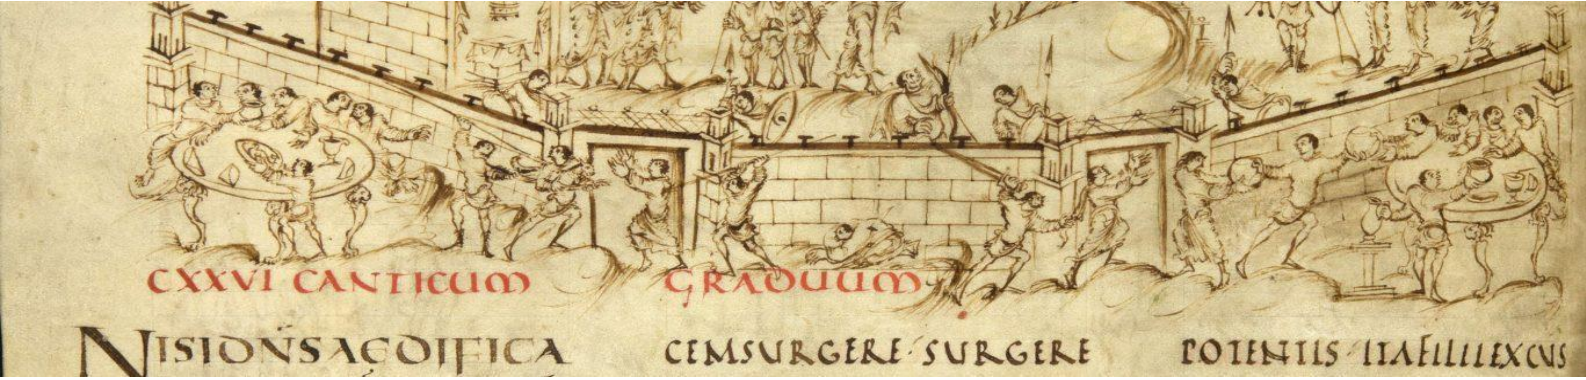 CXXVI CANTICUM GRADUUM.
NISIDN̄SAEDIFICA
CEMSURGERE·SURGERE
POTENTIS·ITAFILIIEXCUS